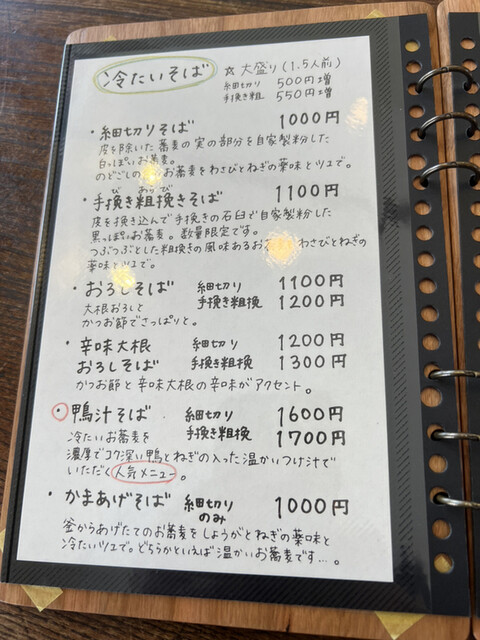 冷たいそば
☆大盛り(1.5人前)
細切り 500円増
手挽き粗 550円増
・細切りそば 1000円
皮を除いた蕎麦の実の部分を自家製粉した
白っぽいお蕎麦。
のどごしの お蕎麦をわさびとねぎの薬味とツユで。
・手挽き粗挽きそば 1100円
び あらび
皮を挽き込んで手挽きの石臼で自家製粉した
黒っぽいお蕎麦。数量限定です。
つぶつぶとした粗挽きの風味あるお わさびとねぎの
薬味とツユで。
・おろしそば 細切り 1100円
手挽き粗挽 1200円
大根おろしと
かつお節でさっぱりと。
・辛味大根 細切り 1200円
おろしそば 手挽き粗挽 1300円
かつお節と辛味大根の辛味がアクセント。
・鴨汁そば 細切り 1600円
手挽き粗挽 1700円
冷たいお蕎麦を
濃厚でコク深い鴨とねぎの入った温かいつけ汁で
いただく人気メニュー。
・かまあげそば 細切り 1000円
のみ
釜からあげたてのお蕎麦をしょうがとねぎの薬味と
冷たいツユで。どちらかといえば温かいお蕎麦です…。